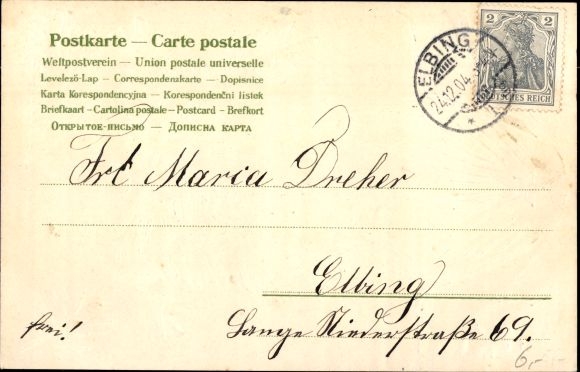 Postkarte — Carte postale
Weltpostverein — Union postale universelle
Levelező-Lap — Correspondenzkarte — Dopisnice
Karta Korespondencyjna — Korespondenční lístek
Briefkaart — Cartolina postale — Postcard — Brefkort
Открытое-письмо — Дописна карта
2 2
DEUTSCHES REICH
ELBING
24.12.04.
Frl Maria Dreher
Elbing
frei!
Lange Niederstraße 69.
6,-